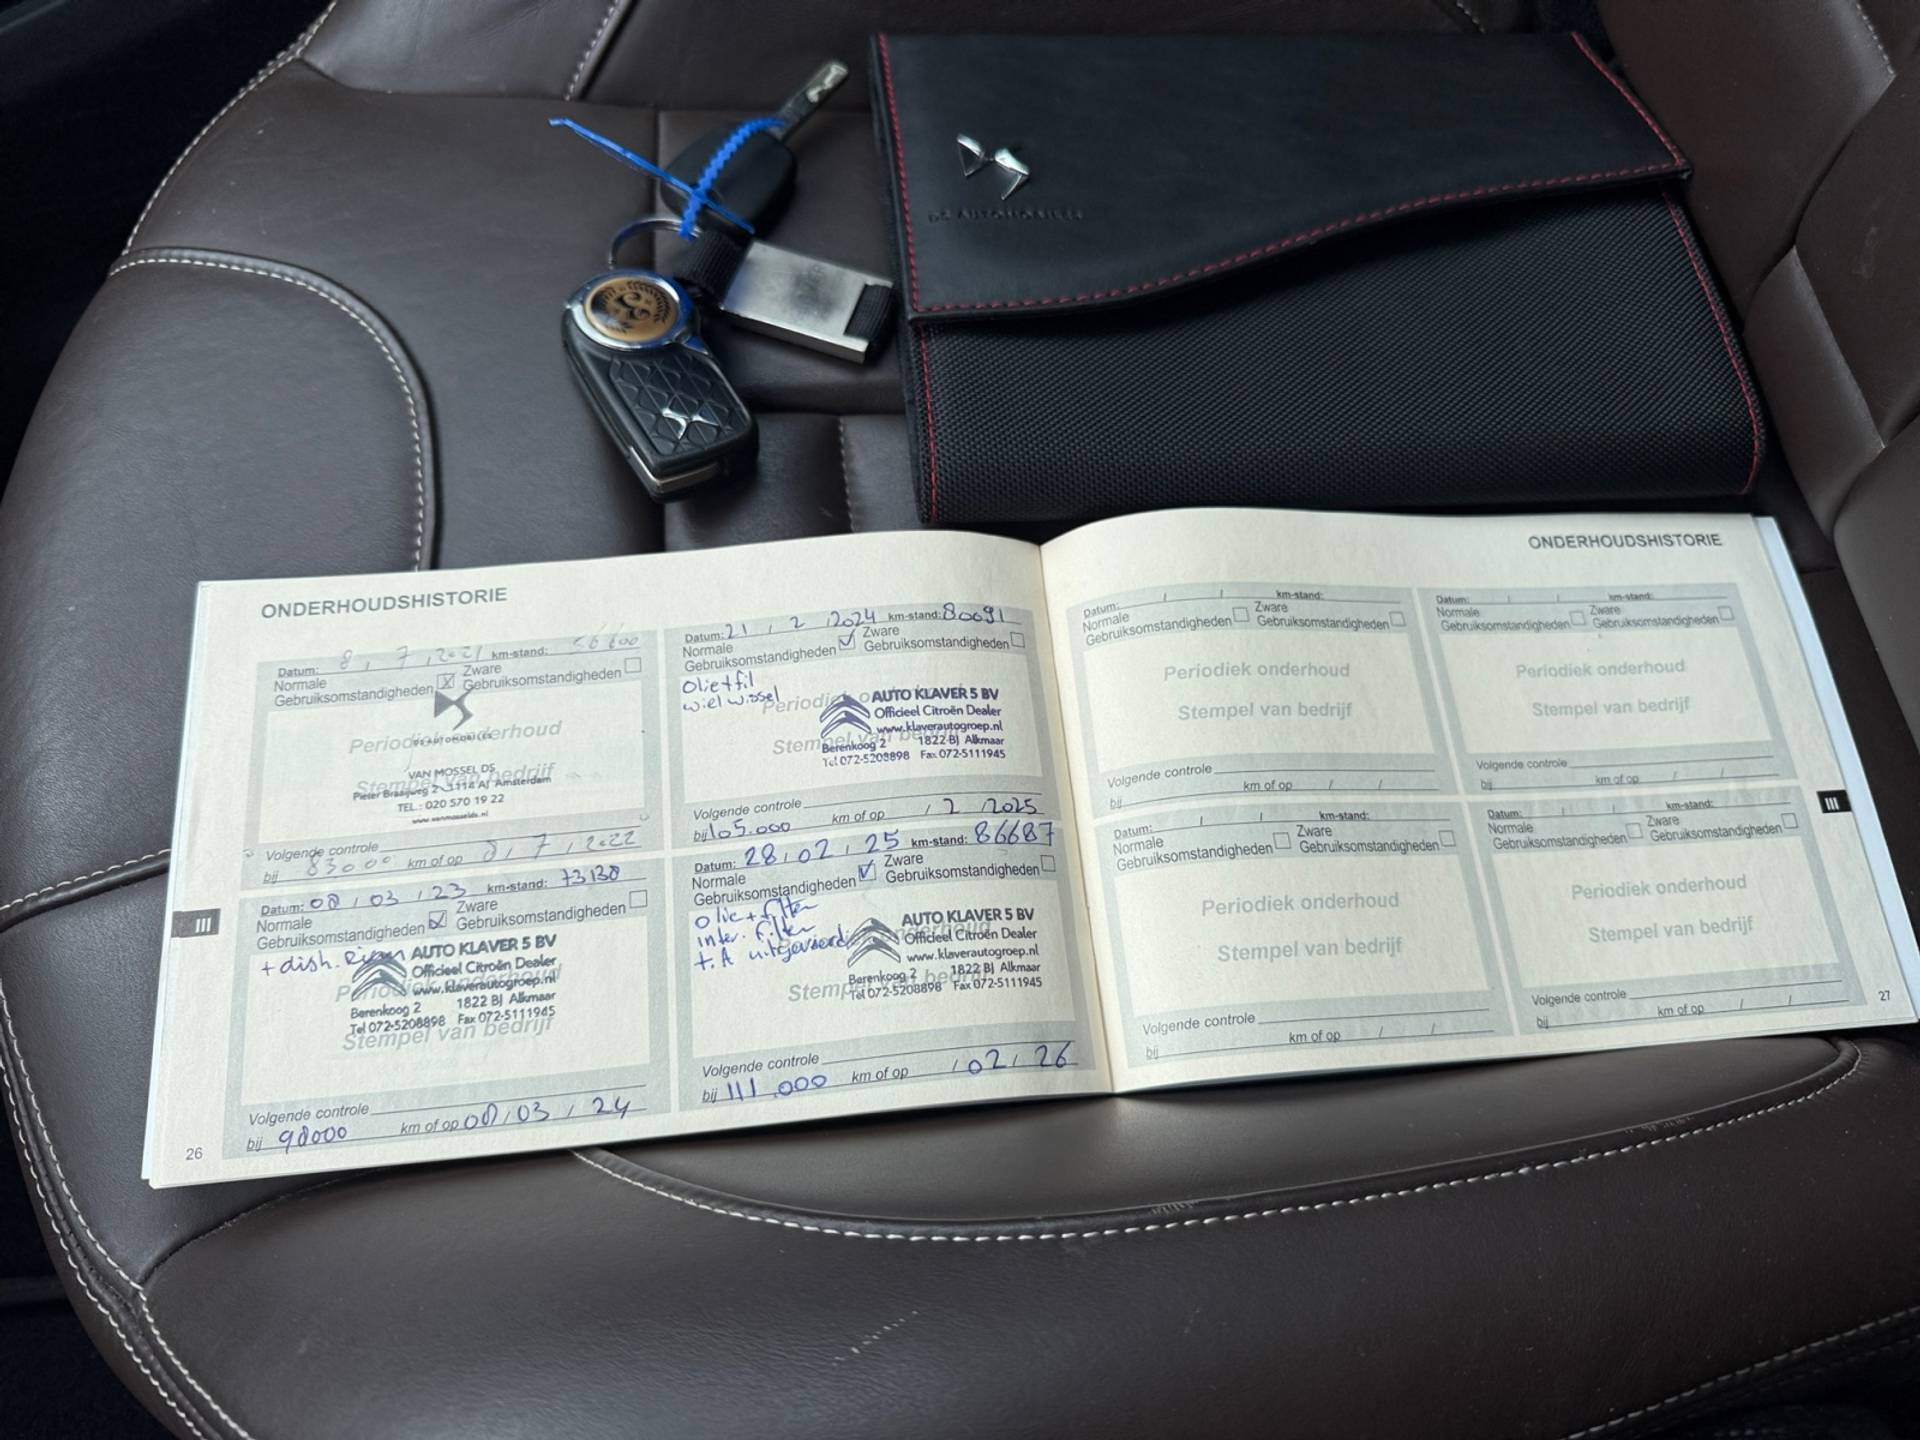 DS AUTOMOBILES
ONDERHOUDSHISTORIE
Datum: 8 , 7 , 2021 km-stand: 56600
Normale Gebruiksomstandigheden X Zware Gebruiksomstandigheden
Periodiek onderhoud
DS AUTOMOBILES
Stempel van bedrijf
VAN MOSSEL DS
Pieter Braaijweg 2 - 1114 AJ Amsterdam
TEL.: 020 570 19 22
www.vanmosselds.nl
Volgende controle
bij 83000 km of op 8 , 7 , 2022
Datum: 08 , 03 , 23 km-stand: 73138
Normale Gebruiksomstandigheden Zware Gebruiksomstandigheden
+ dish.
AUTO KLAVER 5 BV
Officieel Citroën Dealer
www.klaverautogroep.nl
Periodiek onderhoud
Berenkoog 2 1822 BJ Alkmaar
Tel 072-5208898 Fax 072-5111945
Stempel van bedrijf
Volgende controle
bij 98000 km of op 08 / 03 / 24
26
Datum: 21 , 2 , 2024 km-stand: 80091
Normale Gebruiksomstandigheden Zware Gebruiksomstandigheden
Olie+fil
wielwissel
Periodiek onderhoud
AUTO KLAVER 5 BV
Officieel Citroën Dealer
www.klaverautogroep.nl
Stempel van bedrijf
Berenkoog 2 1822 BJ Alkmaar
Tel 072-5208898 Fax 072-5111945
Volgende controle
bij 105.000 km of op / 2 / 2025
Datum: 28 , 02 , 25 km-stand: 86687
Normale Gebruiksomstandigheden Zware Gebruiksomstandigheden
Olie + filter
inter. filter
t.A uitgevoerd
AUTO KLAVER 5 BV
Officieel Citroën Dealer
www.klaverautogroep.nl
Periodiek onderhoud
Berenkoog 2 1822 BJ Alkmaar
Tel 072-5208898 Fax 072-5111945
Stempel van bedrijf
Volgende controle
bij 111.000 km of op / 02 / 26
ONDERHOUDSHISTORIE
Datum: / / km-stand:
Normale Gebruiksomstandigheden Zware Gebruiksomstandigheden
Periodiek onderhoud
Stempel van bedrijf
Volgende controle
bij km of op / /
Datum: / / km-stand:
Normale Gebruiksomstandigheden Zware Gebruiksomstandigheden
Periodiek onderhoud
Stempel van bedrijf
Volgende controle
bij km of op / /
Datum: / / km-stand:
Normale Gebruiksomstandigheden Zware Gebruiksomstandigheden
Periodiek onderhoud
Stempel van bedrijf
Volgende controle
bij km of op / /
Datum: / / km-stand:
Normale Gebruiksomstandigheden Zware Gebruiksomstandigheden
Periodiek onderhoud
Stempel van bedrijf
Volgende controle
bij km of op / /
III
III
27